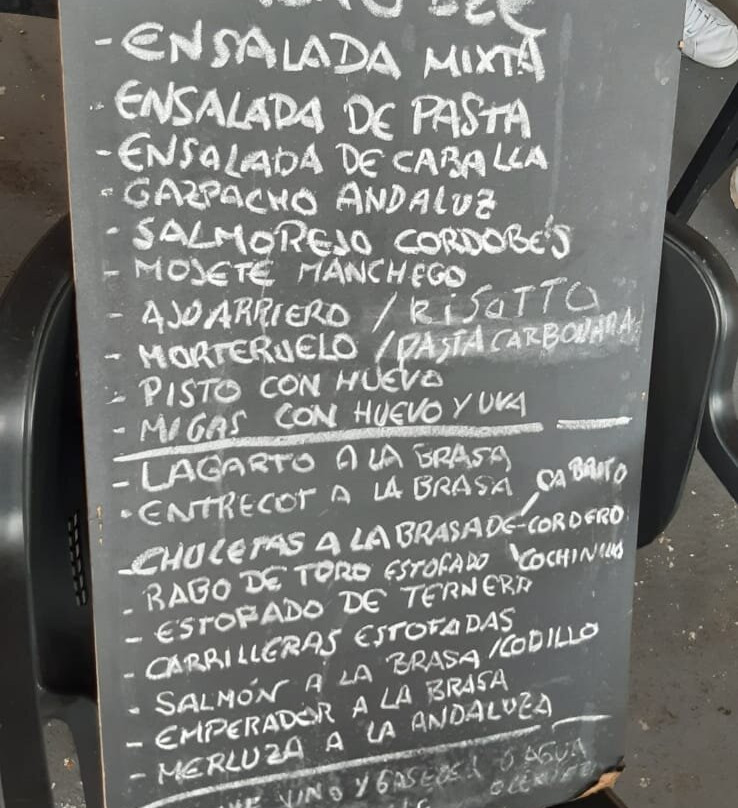 - ENSALADA MIXTA
- ENSALADA DE PASTA
- ENSALADA DE CABALLA
- GAZPACHO ANDALUZ
- SALMOREJO CORDOBÉS
- MOJETE MANCHEGO
- AJOARRIERO / RISOTTO
- MORTERUELO / PASTA CARBONARA
- PISTO CON HUEVO
- MIGAS CON HUEVO Y UVA
- LAGARTO A LA BRASA
- ENTRECOT A LA BRASA
CABRITO
- CHULETAS A LA BRASA DE - CORDERO
COCHINILLO
- RABO DE TORO ESTOFADO
- ESTOFADO DE TERNERA
- CARRILLERAS ESTOFADAS
- SALMÓN A LA BRASA / CODILLO
- EMPERADOR A LA BRASA
- MERLUZA A LA ANDALUZA
VINO Y GASEOSA O AGUA